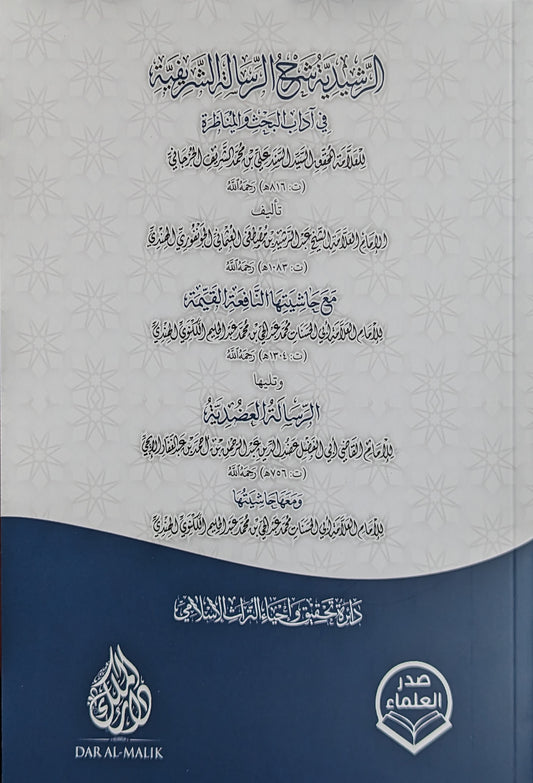 الرشيدية شرح الرسالة الشريفية
في آداب البحث والمناظرة
للعلامة المحقق السيد السند علي بن محمد الشريف الجرجاني
(ت: ٨١٦هـ) رَحِمَهُ اللَّهُ
تأليف
الإمام العلامة الشيخ عبد الرشيد بن مصطفى العثماني الجونفوري الهندي
(ت: ١٠٨٣هـ) رَحِمَهُ اللَّهُ
مع حاشيتها النافعة القيمة
للإمام العلامة أبي الحسنات محمد عبد الحي بن محمد عبد الحليم اللكنوي الهندي
(ت: ١٣٠٤هـ) رَحِمَهُ اللَّهُ
وتليها
الرسالة العضدية
للإمام القاضي أبي الفضل عضد الدين عبد الرحمن بن أحمد بن عبد الغفار الإيجي
(ت: ٧٥٦هـ) رَحِمَهُ اللَّهُ
ومعها حاشيتها
للإمام العلامة أبي الحسنات محمد عبد الحي بن محمد عبد الحليم اللكنوي الهندي
دائرة تحقيق وإحياء التراث الإسلامي
صدر
العلماء
دار الملك
DAR AL-MALIK